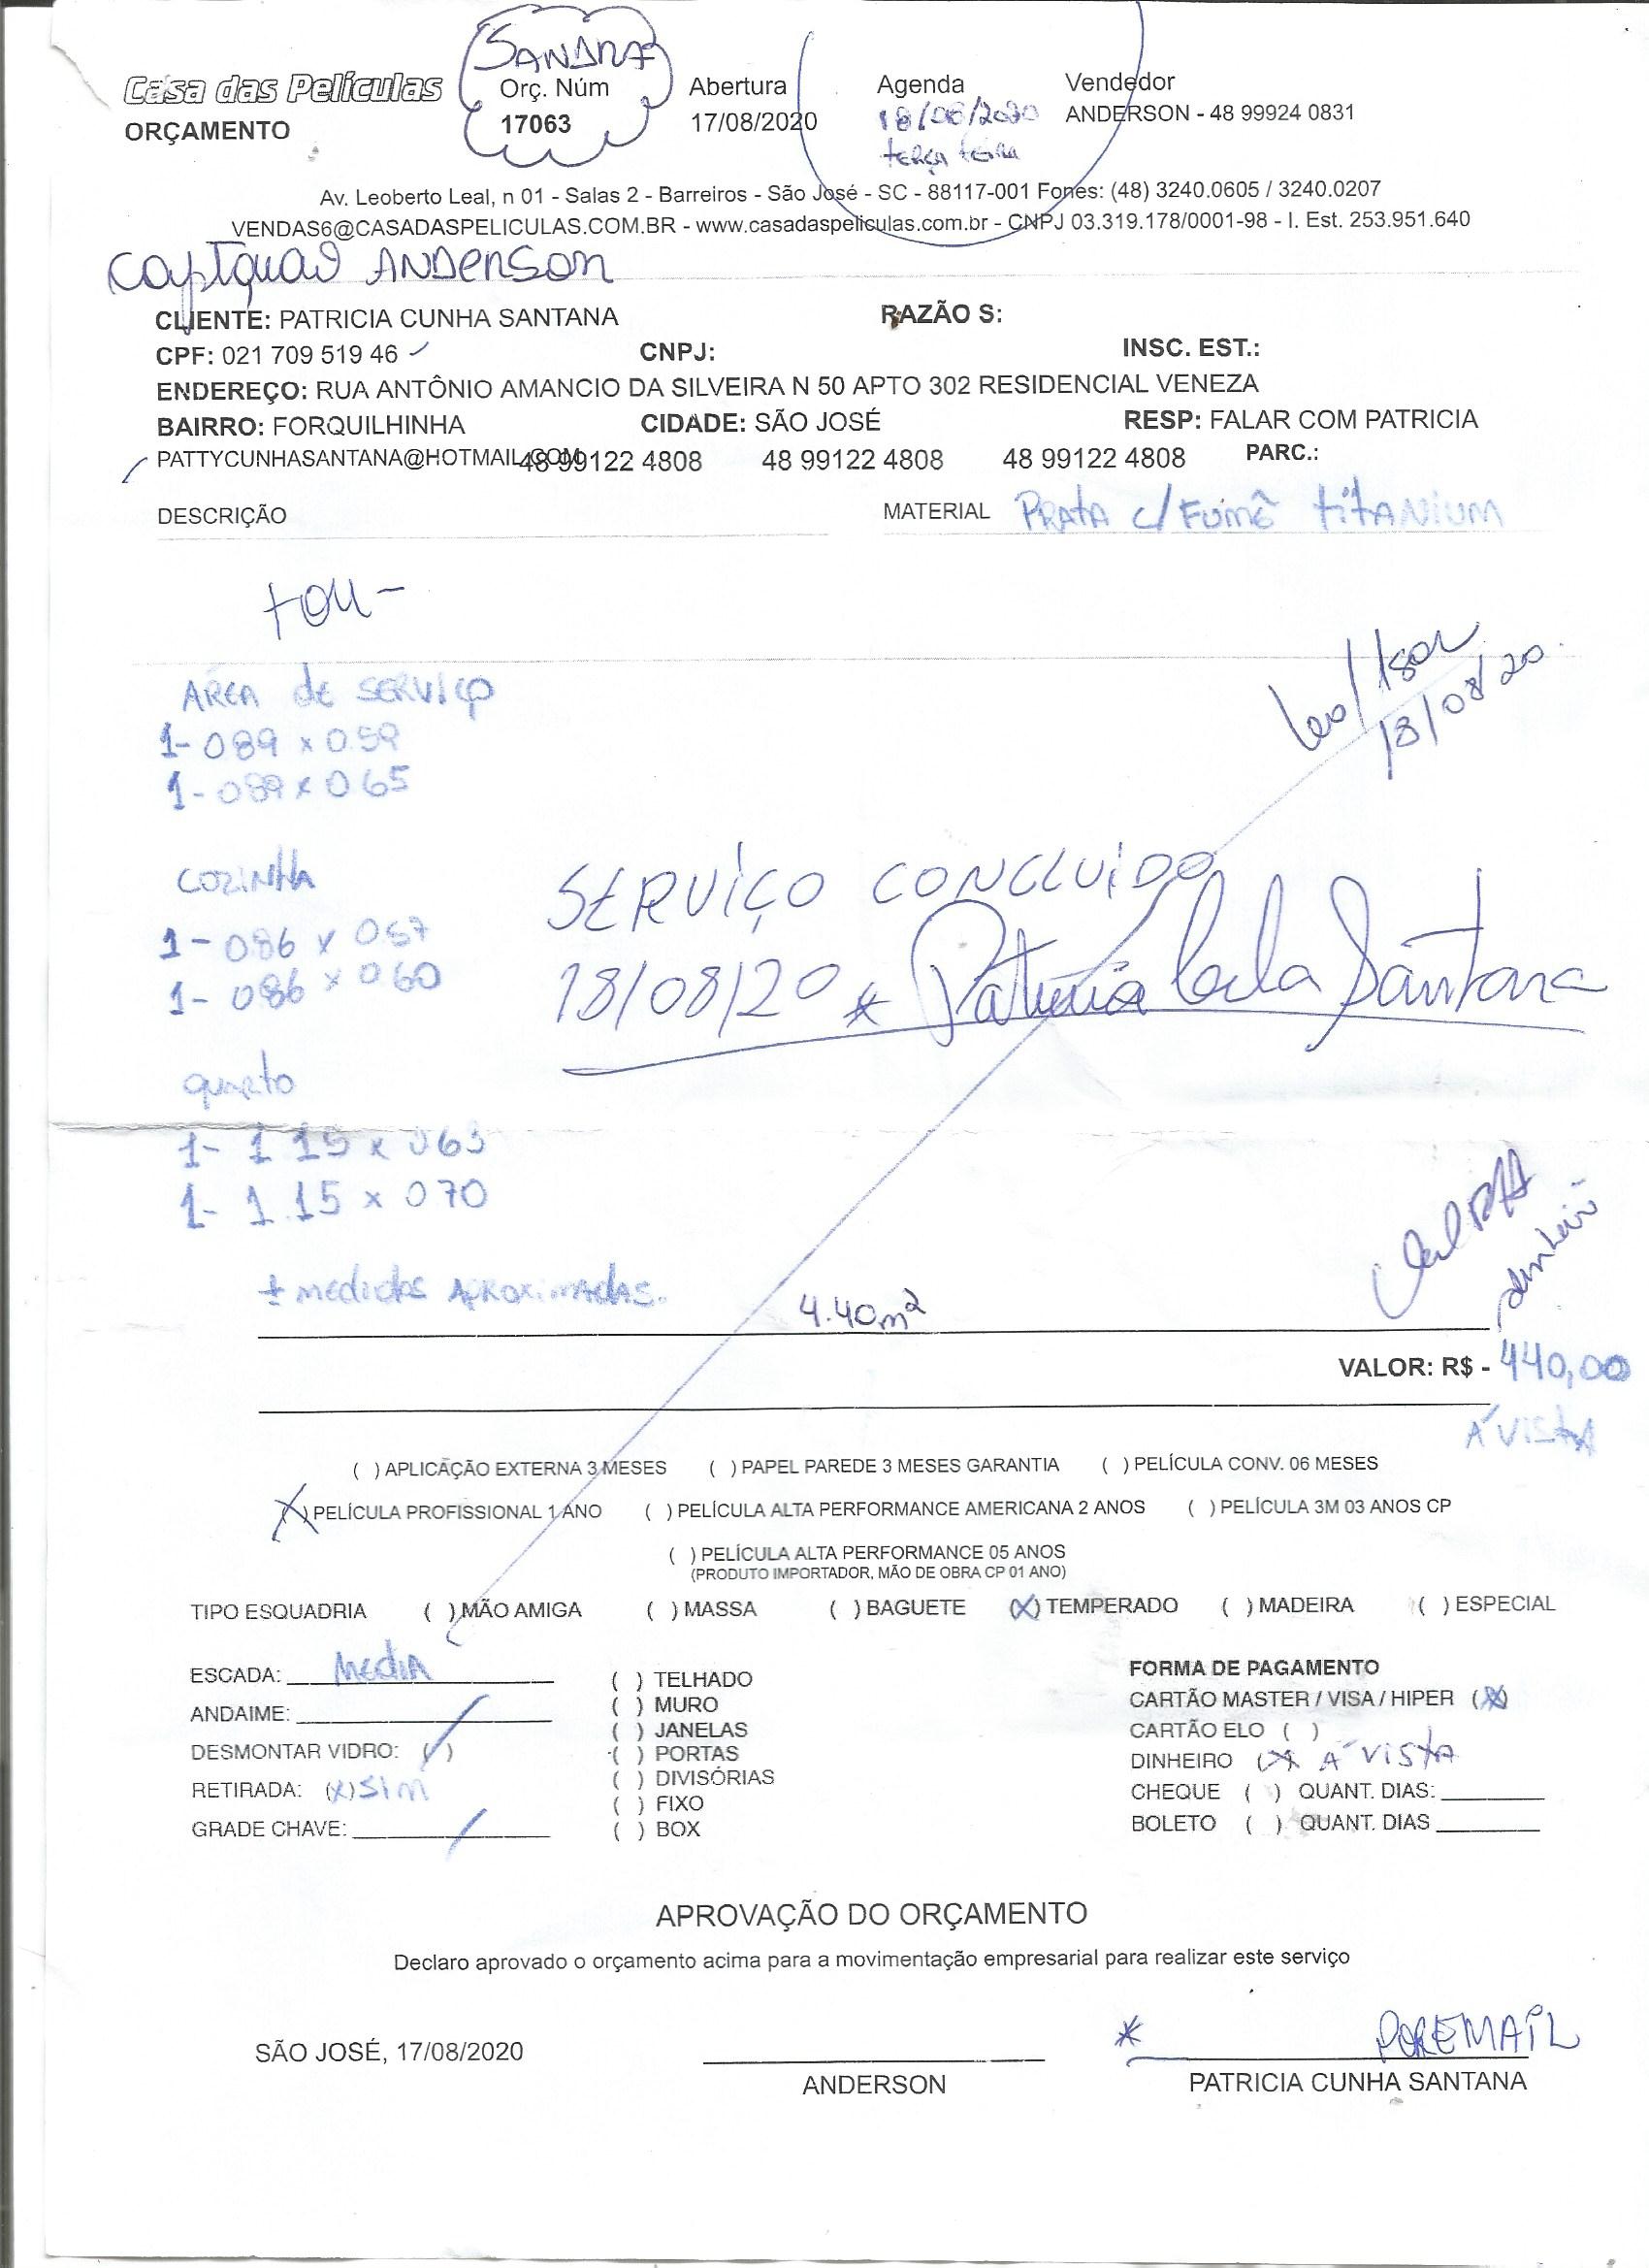 SANDRA
Casa das Películas
ORÇAMENTO
Orç. Núm
17063
Abertura
17/08/2020
Agenda
18/08/2020
terça feira
Vendedor
ANDERSON - 48 99924 0831
Av. Leoberto Leal, n 01 - Salas 2 - Barreiros - São José - SC - 88117-001 Fones: (48) 3240.0605 / 3240.0207
VENDAS6@CASADASPELICULAS.COM.BR - www.casadaspeliculas.com.br - CNPJ 03.319.178/0001-98 - I. Est. 253.951.640
ANDERSON
CLIENTE: PATRICIA CUNHA SANTANA RAZÃO S:
CPF: 021 709 519 46 CNPJ: INSC. EST.:
ENDEREÇO: RUA ANTÔNIO AMANCIO DA SILVEIRA N 50 APTO 302 RESIDENCIAL VENEZA
BAIRRO: FORQUILHINHA CIDADE: SÃO JOSÉ RESP: FALAR COM PATRICIA
PATTYCUNHASANTANA@HOTMAIL.COM 48 99122 4808 48 99122 4808 48 99122 4808 PARC.:
DESCRIÇÃO MATERIAL PRATA c/ FUMÊ titANIUM
Leo/
18/08/20
ÁREA de SERVIÇO
1- 089 x 059
1- 089 x 065
COZINHA
1- 086 x 057
1- 086 x 060
SERVIÇO CONCLUIDO
18/08/20 * Patricia Santana
quarto
1- 1 15 x 063
1- 1.15 x 070
± medidas APROXIMADAS.
4.40m²
dinheiro
VALOR: R$ - 440,00
Á VISTA
( ) APLICAÇÃO EXTERNA 3 MESES ( ) PAPEL PAREDE 3 MESES GARANTIA ( ) PELÍCULA CONV. 06 MESES
(X) PELÍCULA PROFISSIONAL 1 ANO ( ) PELÍCULA ALTA PERFORMANCE AMERICANA 2 ANOS ( ) PELÍCULA 3M 03 ANOS CP
( ) PELÍCULA ALTA PERFORMANCE 05 ANOS
(PRODUTO IMPORTADOR, MÃO DE OBRA CP 01 ANO)
TIPO ESQUADRIA ( ) MÃO AMIGA ( ) MASSA ( ) BAGUETE (X) TEMPERADO ( ) MADEIRA ( ) ESPECIAL
ESCADA: MediA
ANDAIME: /
DESMONTAR VIDRO: (/)
RETIRADA: (X) Sim
GRADE CHAVE: /
( ) TELHADO
( ) MURO
( ) JANELAS
( ) PORTAS
( ) DIVISÓRIAS
( ) FIXO
( ) BOX
FORMA DE PAGAMENTO
CARTÃO MASTER / VISA / HIPER (X)
CARTÃO ELO ( )
DINHEIRO (X) Á VISTA
CHEQUE ( ) QUANT. DIAS:
BOLETO ( ) QUANT. DIAS
APROVAÇÃO DO ORÇAMENTO
Declaro aprovado o orçamento acima para a movimentação empresarial para realizar este serviço
SÃO JOSÉ, 17/08/2020
ANDERSON
* POR EMAIL
PATRICIA CUNHA SANTANA